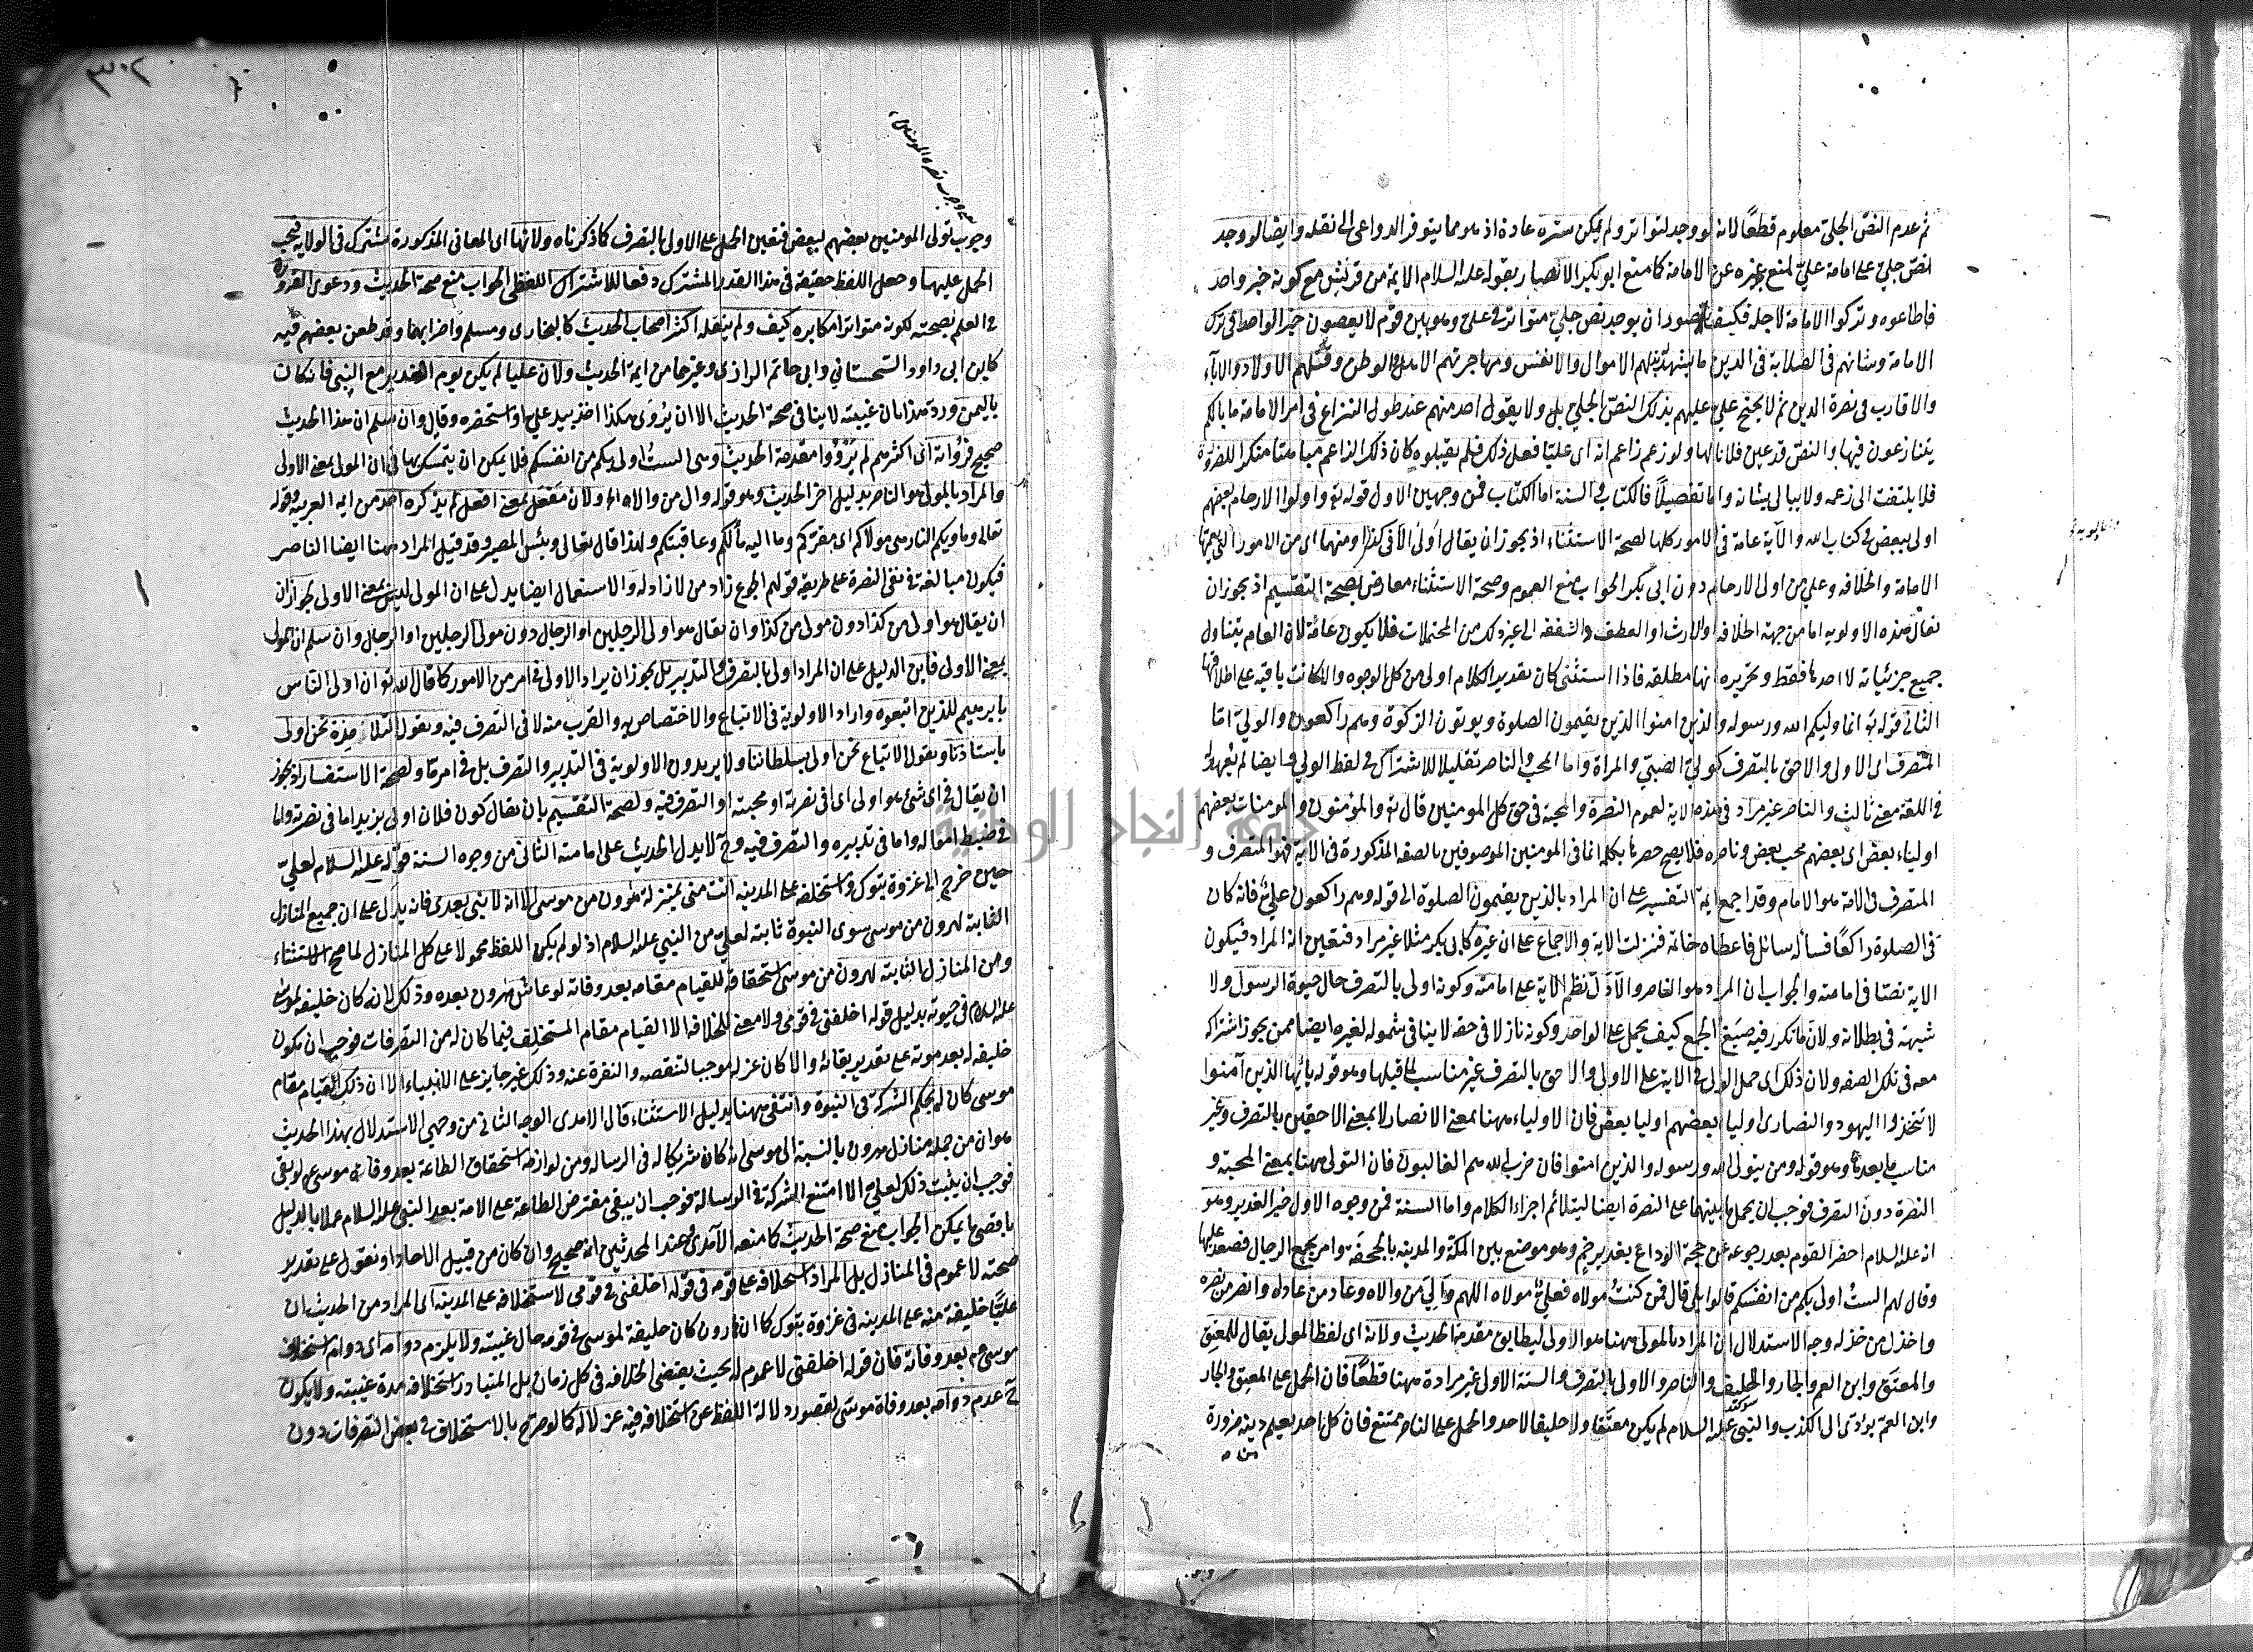 ثم عدم النص الجلي معلوم قطعًا لانه لو وجد لتواتر ولم يمكن ستره عادة اذ هو مما يتوفر الدواعى الى نقله وايضا لو وجد
نص جلي على امامة علي لمنع غيره عن الامامة كما منع ابو بكر الانصار بقوله عليه السلام الايمة من قريش مع كونه خبر واحد
فاطاعوه وتركوا الامامة لاجله فكيف يتصور ان يوجد نص جلي متواتر في علي وهو بين قوم لا يعصون خبر الواحد فى ترك
الامامة وشانهم فى الصلابة فى الدين ما يشهد بذلهم الاموال والانفس ومهاجرتهم الاهل والوطن وقتلهم الاولاد والاباء
والاقارب فى نصرة الدين ثم لا يحتج علي عليهم بذلك النص الجلي بل ولا يقول احد منهم عند طول النزاع فى امر الامامة ما بالكم
يتنازعون فيها والنص قد عين فلانا لها ولو زعم زاعم انه اى عليا فعل ذلك فلم يقبلوه كان ذلك الزاعم مباهتا منكرا للضرورة
فلا يلتفت الى زعمه ولا يبالى بشانه واما تفصيلاً فالكتاب والسنة اما الكتاب فمن وجهين الاول قوله تع واولوا الارحام بعضهم
اولى ببعض في كتاب الله والآية عامة فى الامور كلها لصحة الاستثناء اذ يجوز ان يقال اولى الا فى كذا ومنها اى من الامور التى يعمها
الامامة والخلافه وعلي من اولى الارحام دون ابى بكر الجواب منع العموم وصحة الاستثناء معارض بصحة التقسيم اذ يجوز ان
يقال هذه الاولوية اما من جهة الخلافة او الارث او العطف والشفقه الى غير ذلك من المحتملات فلا يكون عامة لان العام يتناول
جميع جزئياته لا احدها فقط وتحريره انها مطلقه فاذا استثنى كان تقدير الكلام اولى من كل الوجوه والا كانت باقيه على اطلاقها
الثانى قوله تع انما وليكم الله ورسوله والذين امنوا الذين يقيمون الصلوة ويوتون الزكوة وهم راكعون والولي اما
المتصرف اى الاولى والاحق بالتصرف كولي الصبي والمراة واما المحب والناصر تقليلا للاشتراك في لفظ الولي وايضا لم يعهد
في اللغة معنى ثالث والناصر غير مراد فى هذه الاية لعموم النصرة والمحبة فى حق كل المومنين قال تع والمؤمنون والمومنات بعضهم
اولياء بعض اى بعضهم محب بعض وناصره فلا يصح حصرها بكلمة انما فى المومنين الموصوفين بالصفه المذكورة فى الاية فهو المتصرف و
المتصرف فى الامة هو الامام وقد اجمع ايمة التفسير على ان المراد بالذين يقيمون الصلوة الى قوله وهم راكعون علي فانه كان
فى الصلوة راكعًا فسأله سائل فاعطاه خاتمه فنزلت الاية والاجماع على ان غيره كابى بكر مثلا غير مراد فتعين انه المراد فيكون
الاية نصا فى امامته والجواب ان المراد هو الناصر والا دل نظم الاية على امامته وكونه اولى بالتصرف حال حيوة الرسول ولا
شبهة فى بطلانه ولان ما تكرر فيه صيغ الجمع كيف يحمل على الواحد وكونه نازلا فى حقه لا ينافى شموله لغيره ايضا ممن يجوز اشتراكه
معه فى تلك الصفه ولان ذلك اى حمل الولى فى الاية على الاولى والاحق بالتصرف غير مناسب لما قبلها وهو قوله يا ايها الذين آمنوا
لا تتخذوا اليهود والنصارى اوليا بعضهم اوليا بعض فان الاولياء ههنا بمعنى الانصار لا بمعنى الاحقين بالتصرف وغير
مناسب لما بعدها وهو قوله ومن يتول الله ورسوله والذين امنوا فان حزب الله هم الغالبون فان التولى ههنا بمعنى المحبة و
النصرة دون التصرف فوجب ان يحمل ما بينهما على النصرة ايضا ليتلائم اجزاء الكلام واما السنة فمن وجوه الاول خبر الغدير وهو
انه عليه السلام احضر القوم بعد رجوعه عن حجة الوداع بغدير خم وهو موضع بين المكة والمدينه بالجحفة وامر بجمع الرحال فصعد عليها
وقال لهم الستُ اولى بكم من انفسكم قالوا بلى قال فمن كنتُ مولاه فعليٌ مولاه اللهم والِ من والاه وعاد من عاداه وانصر من نصره
واخذل من خذله وجه الاستدلال ان المراد بالمولى ههنا هو الاولى ليطابق مقدمة الحديث ولانه اى لفظ المولى يقال للمعتِق
والمعتَق وابن العم والجار والحليف والناصر والاولى بالتصرف والستة الاولى غير مرادة ههنا قطعًا فان الحمل على المعتِق والجار
وابن العم يودى الى الكذب والنبى عليه السلام لم يكن معتَقا ولا حليفا لاحد والحمل على الناصر ممتنع فان كل احد يعلم دينه ضرورة
من
على وجوب نصرة المومنين
وجوب تولى المومنين بعضهم لبعض فتعين الحمل على الاولى بالتصرف كما ذكرناه ولانها اى المعانى المذكورة مشترك فى الولاية فيجب
الحمل عليها وجعل اللفظ حقيقة فى هذا القدر المشترك دفعا للاشتراك اللفظى الجواب منع صحة الحديث ودعوى الضرورة
فى العلم بصحته لكونه متواترا مكابره كيف ولم ينقله اكثر اصحاب الحديث كالبخارى ومسلم واضرابهما وقد طعن بعضهم فيه
كابن ابى داود السجستانى وابى حاتم الرازى وغيرهما من ايمة الحديث ولان عليا لم يكن يوم الغدير مع النبى فانه كان
باليمن ورد هذا بان غيبته لا ينافى صحة الحديث الا ان يُروَى هكذا اخذ بيد علي او استحضره وقال وان سلم ان هذا الحديث
صحيح فرُواته اى اكثرهم لم يروُوا مقدمة الحديث وهى الستُ اولى بكم من انفسكم فلا يمكن ان يتمسك بها فى ان المولى بمعنى الاولى
والمراد بالمولى هو الناصر بدليل اخر الحديث وهو قوله وال من والاه الخ ولان مَفعَل بمعنى افعل لم يذكره احد من ايمة العربية وقوله
تعالى وماويكم النار هى مولاكم اى مقركم وما اليه مألكم وعاقبتكم ولهذا قال تعالى وبئس المصير وقد قيل المراد ههنا ايضا الناصر
فيكون مبالغة فى نفى النصرة على طريقة قولهم الجوع زاد من لا زاد له والاستعمال ايضا يدل على ان المولى ليس بمعنى الاولى لجواز ان
ان يقال هو اولى من كذا دون مولى من كذا وان يقال هو اولى الرجلين او الرجال دون مولى الرجلين او الرجال وان سلم ان المولى
بمعنى الاولى فاين الدليل على ان المراد اولى بالتصرف والتدبير بل يجوز ان يراد الاولى فى امر من الامور كما قال الله تع ان اولى الناس
بابرهيم للذين اتبعوه واراد الاولوية فى الاتباع والاختصاص به والقرب منه لا فى التصرف فيه ويقول التلامِذة نحن اولى
باستاذنا ويقول الاتباع نحن اولى بسلطاننا ولا يريدون الاولوية فى التدبير والتصرف بل فى امر ما ولصحة الاستفسار اذ يجوز
ان يقال فى اى شئ هو اولى اى فى نصرته او محبته او التصرف فيه ولصحة التقسيم بان يقال كون فلان اولى بزيد اما فى نصرته واما
فى ضبط امواله واما فى تدبيره والتصرف فيه وح لا يدل الحديث على امامته الثانى من وجوه السنة قوله عليه السلام لعلي
حين خرج الى غزوة تبوك واستخلفه على المدينه انت منى بمنزلة هرون من موسى الا انه لا نبى بعدى فانه يدل على ان جميع المنازل
الثابتة لهرون من موسى سوى النبوة ثابتة لعلي من النبى عليه السلام اذ لو لم يكن اللفظ محمولا على كل المنازل لما صح الاستثناء
ومن المنازل الثابته لهرون من موسى استحقاقه للقيام مقامه بعد وفاته لو عاش هرون بعده وذلك لانه كان خليفه لموسى
عليه السلام فى حيوته بدليل قوله اخلفنى فى قومى ولا معنى للخلافه الا القيام مقام المستخلِف فيما كان له من التصرفات فوجب ان يكون
خليفه له بعد موته على تقدير بقائه والا كان عزله موجبا لتنقصه والنفرة عنه وذلك غير جايز على الانبياء الا ان ذلك القيام مقام
موسى كان له بحكم الشركة فى النبوة وانتفى ههنا بدليل الاستثناء قال الامدى الوجه الثانى من وجهى الاستدلال بهذا الحديث
هو ان من جملة منازل هرون بالنسبة الى موسى انه كان شريكا له فى الرسالة ومن لوازمه استحقاق الطاعة بعد وفاة موسى لو بقى
فوجب ان يثبت ذلك لعلي الا انه امتنع الشركة فى الرسالة فوجب ان يبقى مفترض الطاعة على الامة بعد النبى عليه السلام عملا بالدليل
باقصى ما يمكن الجواب منع صحة الحديث كما منعه الآمدى وعند المحدثين انه صحيح وان كان من قبيل الاحاد او نقول على تقدير
صحته لا عموم فى المنازل بل المراد استخلافه على قومه فى قوله اخلفنى فى قومى لاستخلافه على المدينه اى المراد من الحديث ان
عليًا خليفة منه على المدينه فى غزوة تبوك كما ان هارون كان خليفة لموسى فى قومه حال غيبته ولا يلزم دوامه اى دوام استخلاف
موسى بعد وفاته فان قوله اخلفنى لا عموم له بحيث يقتضى الخلافه فى كل زمان بل المتبادر استخلافه مدة غيبته ولا يكون
ح عدم دوامه بعد وفاة موسى لقصور دلالة اللفظ عن استخلافه فيه عزلا له كما لو صرح بالاستخلاف فى بعض التصرفات دون
جامعة النجاح الوطنية